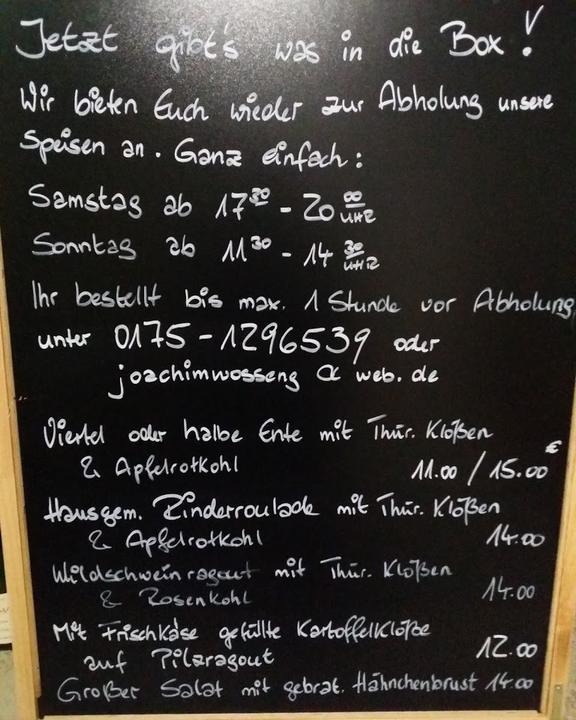 Jetzt gibt's was in die Box!
Wir bieten Euch wieder zur Abholung unsere
Speisen an. Ganz einfach:
Samstag ab 17³⁰ - 20⁰⁰ UHR
Sonntag ab 11³⁰ - 14³⁰ UHR
Ihr bestellt bis max. 1 Stunde vor Abholung
unter 0175-1296539 oder
joachimwosseng @ web.de
Viertel oder halbe Ente mit Thür. Klößen
& Apfelrotkohl 11.00 / 15.00 €
Hausgem. Rinderroulade mit Thür. Klößen
& Apfelrotkohl 14.00
Wildschweinragout mit Thür. Klößen
& Rosenkohl 14.00
Mit Frischkäse gefüllte Kartoffelklöße
auf Pilzragout 12.00
Großer Salat mit gebrat. Hähnchenbrust 14.00